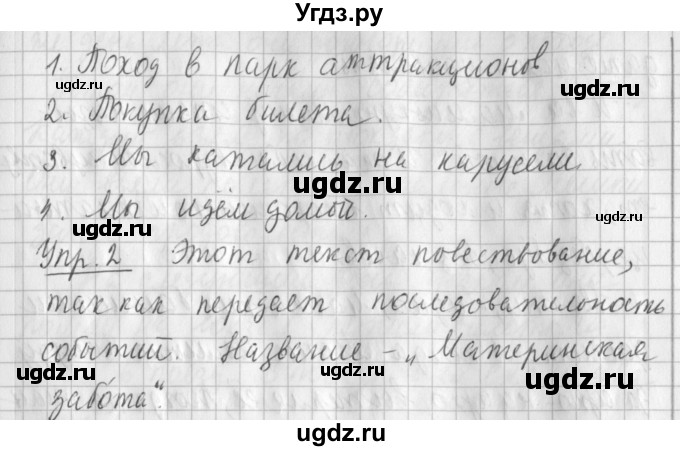 Угдз.ру
1. Поход в парк аттракционов
2. Покупка билета.
3. Мы катались на карусели
4. Мы идём домой.
Упр. 2 Этот текст повествование,
так как передает последовательность
событий. Название – „Материнская
забота“.
ugdz.ru
ugdz.ru
ugdz.ru
ugdz.ru
ugdz.ru
ugdz.ru
ugdz.ru
ugdz.ru
ugdz.ru
ugdz.ru
ugdz.ru